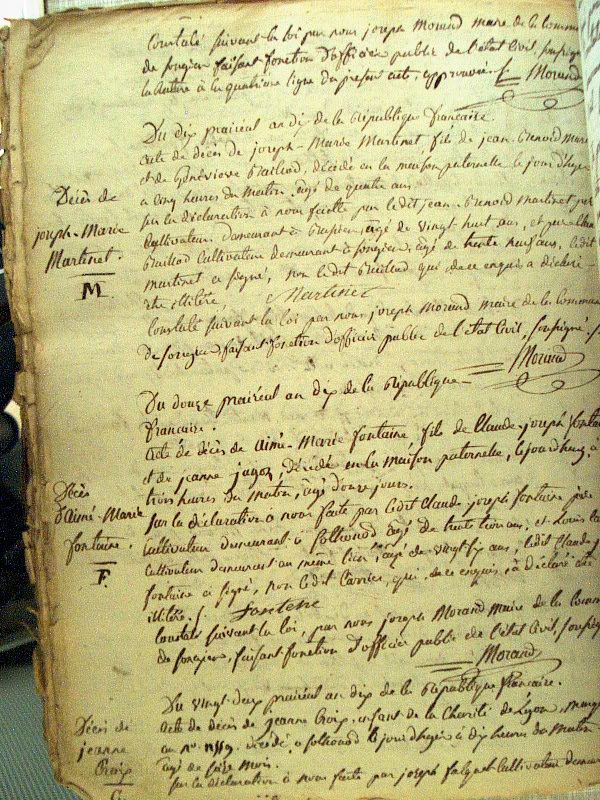 Constaté suivant la loi par nous joseph Morand maire de la commune
de songieu faisant fonction d'officier public de l'état Civil, soussigné
la rature à la quatrieme ligne du present acte approuvée. Morand
Du dix prairéal an dix de la République française
Décès de
joseph-Marie
Martinet.
M
acte de décès de joseph-Marie Martinet, fils de jean-Benoid
et de Géneviève Brillad, décédé en la maison paternelle le jour d'hyer
a cinq heures du Matin agé de quatre ans.
sur la déclaration à nous faitte par ledit jean-Benoid martinet père
cultivateur demeurant à agé de vingt huit ans, et par
cultivateur demeurant à songieu, agé de trente neuf ans, ledit
martinet a signé, non ledit qui de ce enquis a déclaré
etre illitéré Martinet
Constaté suivant la loi par nous joseph Morand maire de la commune
de songieu, faisant fonction d'officier public de l'état Civil, soussigné.
Morand
Du douze prairéal an dix de la République
française.
Décès
d'aimé-Marie
fontaine.
F
acte de décès de aimé-Marie fontaine fils de Claude-joseph fontaine
et de jeanne, décédé en la maison paternelle, le jourdhuy à
trois heures du matin, agé douze jours.
sur la déclaration à nous faite par ledit Claude joseph fontaine père
cultivateur demeurant à Sothonod agé de trente trois ans, et Louis
cultivateur demeurant au même lieu, agé de vingt six ans, ledit Claude
fontaine a signé, non ledit Carrier, qui, de ce enquis, a déclaré etre
illitéré. fontaine
Constaté suivant la loi, par nous joseph Morand maire de la commune
de songieu, faisant fonction d'officier public de l'état Civil, soussigné
Morand
Du vingt-deux prairéal an dix de la République française.
Décès de
jeanne
Croix
acte de décès de jeanne Croix, enfant de la Charité de Lyon,
au no. décédé, a sothonod le jour d'hyer à dix heures du Matin
agé de seize mois.
sur la déclaration à nous faite par joseph cultivateur